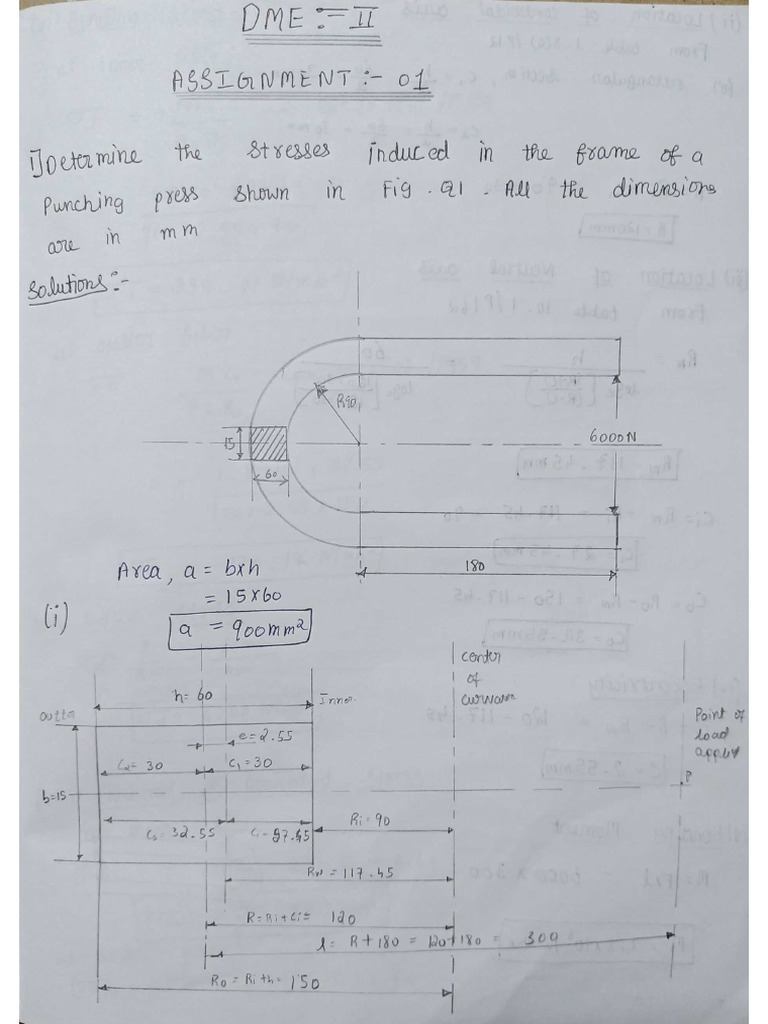 DME :- II
ASSIGNMENT :- 01
1) Determine the stresses induced in the frame of a
Punching press shown in Fig. Q1. All the dimensions
are in mm
Solutions :-
R90
15
60
6000N
180
Area, a = bxh
= 15x60
(i)
a = 900mm²
center
of
h= 60
Inner
outter
Point of
load
e=2.55
C2= 30
C1=30
b=15
P
Ri=90
Co=32.55
RN = 117.45
R=Ri+Ci= 120
l= R+180 = 120+180 = 300
Ro = Ri+h= 150